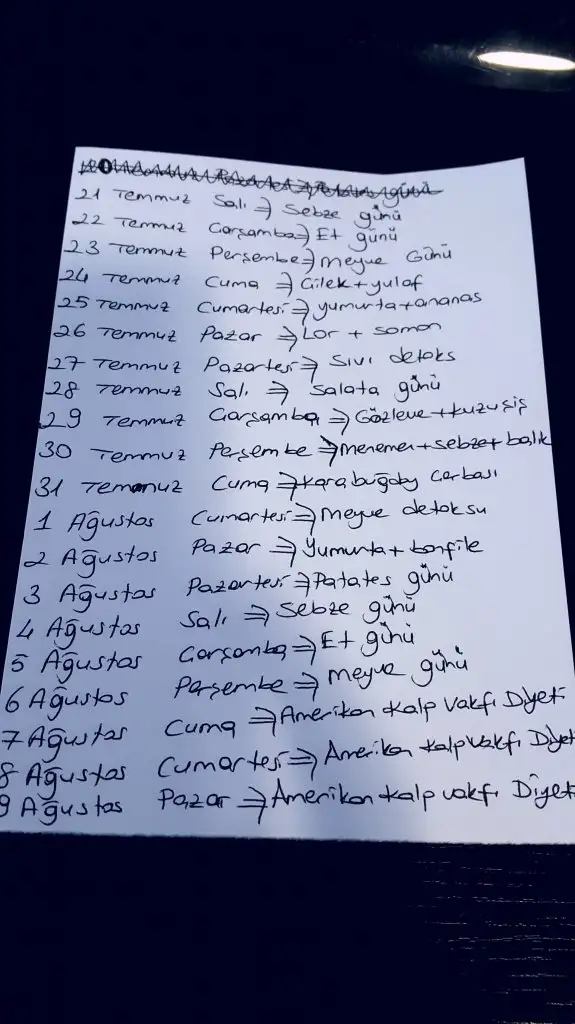 günü
21 Temmuz Salı ⇒ Sebze günü
22 Temmuz Çarşamba ⇒ Et günü
23 Temmuz Perşembe ⇒ meyve Günü
24 Temmuz Cuma ⇒ Çilek + yulaf
25 Temmuz Cumartesi ⇒ yumurta + ananas
26 Temmuz Pazar ⇒ Lor + somon
27 Temmuz Pazartesi ⇒ Sıvı detoks
28 Temmuz Salı ⇒ Salata günü
29 Temmuz Çarşamba ⇒ Gözleme + kuzu şiş
30 Temmuz Perşembe ⇒ menemen + sebze + balık
31 Temmuz Cuma ⇒ karabuğday çorbası
1 Ağustos Cumartesi ⇒ meyve detoksu
2 Ağustos Pazar ⇒ Yumurta + bonfile
3 Ağustos Pazartesi ⇒ Patates günü
4 Ağustos Salı ⇒ Sebze günü
5 Ağustos Çarşamba ⇒ Et günü
6 Ağustos Perşembe ⇒ meyve günü
7 Ağustos Cuma ⇒ Amerikan Kalp Vakfı Diyeti
8 Ağustos Cumartesi ⇒ Amerikan Kalp Vakfı Diyet
9 Ağustos Pazar ⇒ Amerikan Kalp Vakfı Diyet